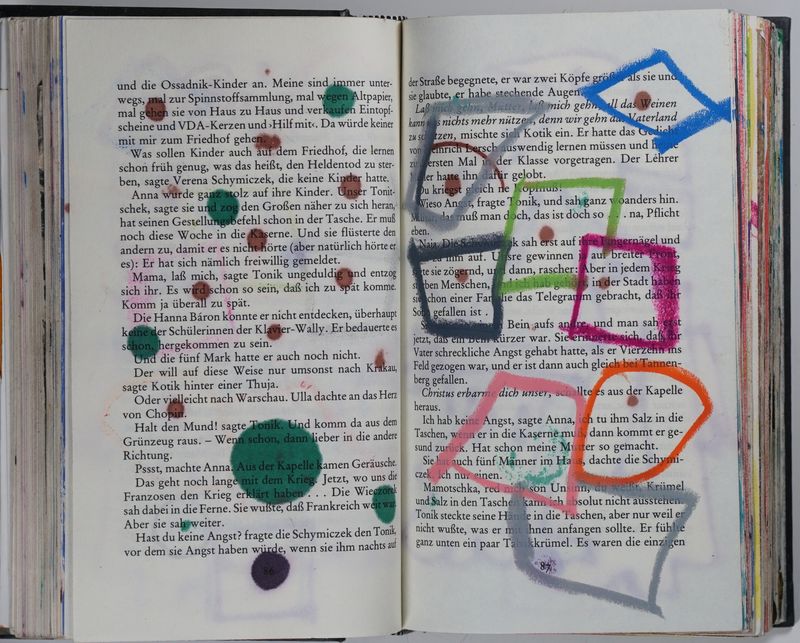 und die Ossadnik-Kinder an. Meine sind immer unter-
wegs, mal zur Spinnstoffsammlung, mal wegen Altpapier,
mal gehen sie von Haus zu Haus und verkaufen Eintopf-
scheine und VDA-Kerzen und ›Hilf mit‹. Da würde keiner
mit mir zum Friedhof gehen.
Was sollen Kinder auch auf dem Friedhof, die lernen
schon früh genug, was das heißt, den Heldentod zu ster-
ben, sagte Verena Schymiczek, die keine Kinder hatte.
Anna würde ganz stolz auf ihre Kinder. Unser Tonit-
schek, sagte sie und zog den Großen näher zu sich heran,
hat seinen Gestellungsbefehl schon in der Tasche. Er muß
noch diese Woche in die Kaserne. Und sie flüsterte den
andern zu, damit er es nicht hörte (aber natürlich hörte er
es): Er hat sich nämlich freiwillig gemeldet.
Mama, laß mich, sagte Tonik ungeduldig und entzog
sich ihr. Es wird schon so sein, daß ich zu spät komme.
Komm ja überall zu spät.
Die Hanna Baron konnte er nicht entdecken, überhaupt
keine der Schülerinnen der Klavier-Wally. Er bedauerte es
schon, hergekommen zu sein.
Und die fünf Mark hatte er auch noch nicht.
Der will auf diese Weise nur umsonst nach Krakau,
sagte Kotik hinter einer Thuja.
Oder vielleicht nach Warschau. Ulla dachte an das Herz
von Chopin.
Halt den Mund! sagte Tonik. Und komm da aus dem
Grünzeug raus. – Wenn schon, dann lieber in die andere
Richtung.
Pssst, machte Anna. Aus der Kapelle kamen Geräusche.
Das geht noch lange mit dem Krieg. Jetzt, wo uns die
Franzosen den Krieg erklärt haben . . . Die Wieczorek
sah dabei in die Ferne. Sie wußte, daß Frankreich weit war.
Aber sie sah weiter.
Hast du keine Angst? fragte die Schymiczek den Tonik,
vor dem sie Angst haben würde, wenn sie ihm nachts auf
86
der Straße begegnete, er war zwei Köpfe größer als sie und
sie glaubte, er habe stechende Augen.
Laß mich gehn, Mutter, laß mich gehn, all das Weinen
kann uns nichts mehr nützen, denn wir gehn das Vaterland
zu schützen, mischte sich Kotik ein. Er hatte das Gedicht
auswendig lernen müssen und
ersten Mal in der Klasse vorgetragen. Der Lehrer
hatte ihn dafür gelobt.
Du kriegst gleich Kopfnuß!
Wieso Angst, fragte Tonik, und sah ganz woanders hin.
das muß man doch, das ist doch so . . . na, Pflicht
eben.
Naja. Die sah erst auf ihre Fingernägel und
zu ihm auf. Unsre gewinnen auf breiter Front,
sie zögernd, und dann, rascher: Aber in jedem Krieg
sterben Menschen, ich hab gehört, in der Stadt haben
sie schon einer Familie das Telegramm gebracht, daß ihr
Sohn gefallen ist .
Bein aufs andre, und man sah erst
jetzt, daß ein Bein kürzer war. Sie erinnerte sich, daß ihr
Vater schreckliche Angst gehabt hatte, als er Vierzehn ins
Feld gezogen war, und er ist dann auch gleich bei Tannen-
berg gefallen.
Christus erbarme dich unser, schallte es aus der Kapelle
heraus.
Ich hab keine Angst, sagte Anna, ich tu ihm Salz in die
Taschen, wenn er in die Kaserne muß, dann kommt er ge-
sund zurück. Hat schon meine Mutter so gemacht.
Sie hat auch fünf Männer im Haus, dachte die Schymi-
czek, ich nur einen.
Mamotschka, red nicht son Unsinn, du weißt, Krümel
und Salz in den Taschen kann ich absolut nicht ausstehen.
Tonik steckte seine Hände in die Taschen, aber nur weil er
nicht wußte, was er mit ihnen anfangen sollte. Er fühlte
ganz unten ein paar Tabakkrümel. Es waren die einzigen
87